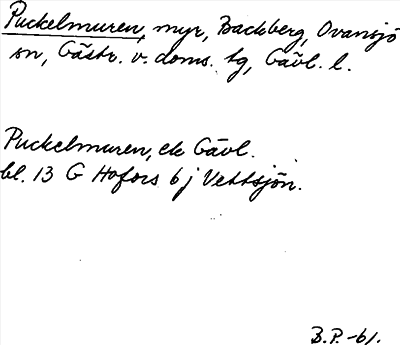 Puckelmuren, myr, Backberg, Ovansjö
sn, Gästr. v. doms. tg, Gävl. l.
Puckelmuren, ek Gävl.
bl. 13 G Hofors 6 j Vettsjön.
B.P. -61.